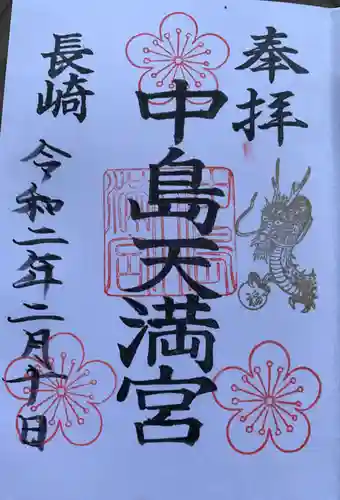 奉拝
中島天満宮
長崎
令和二年二月十日